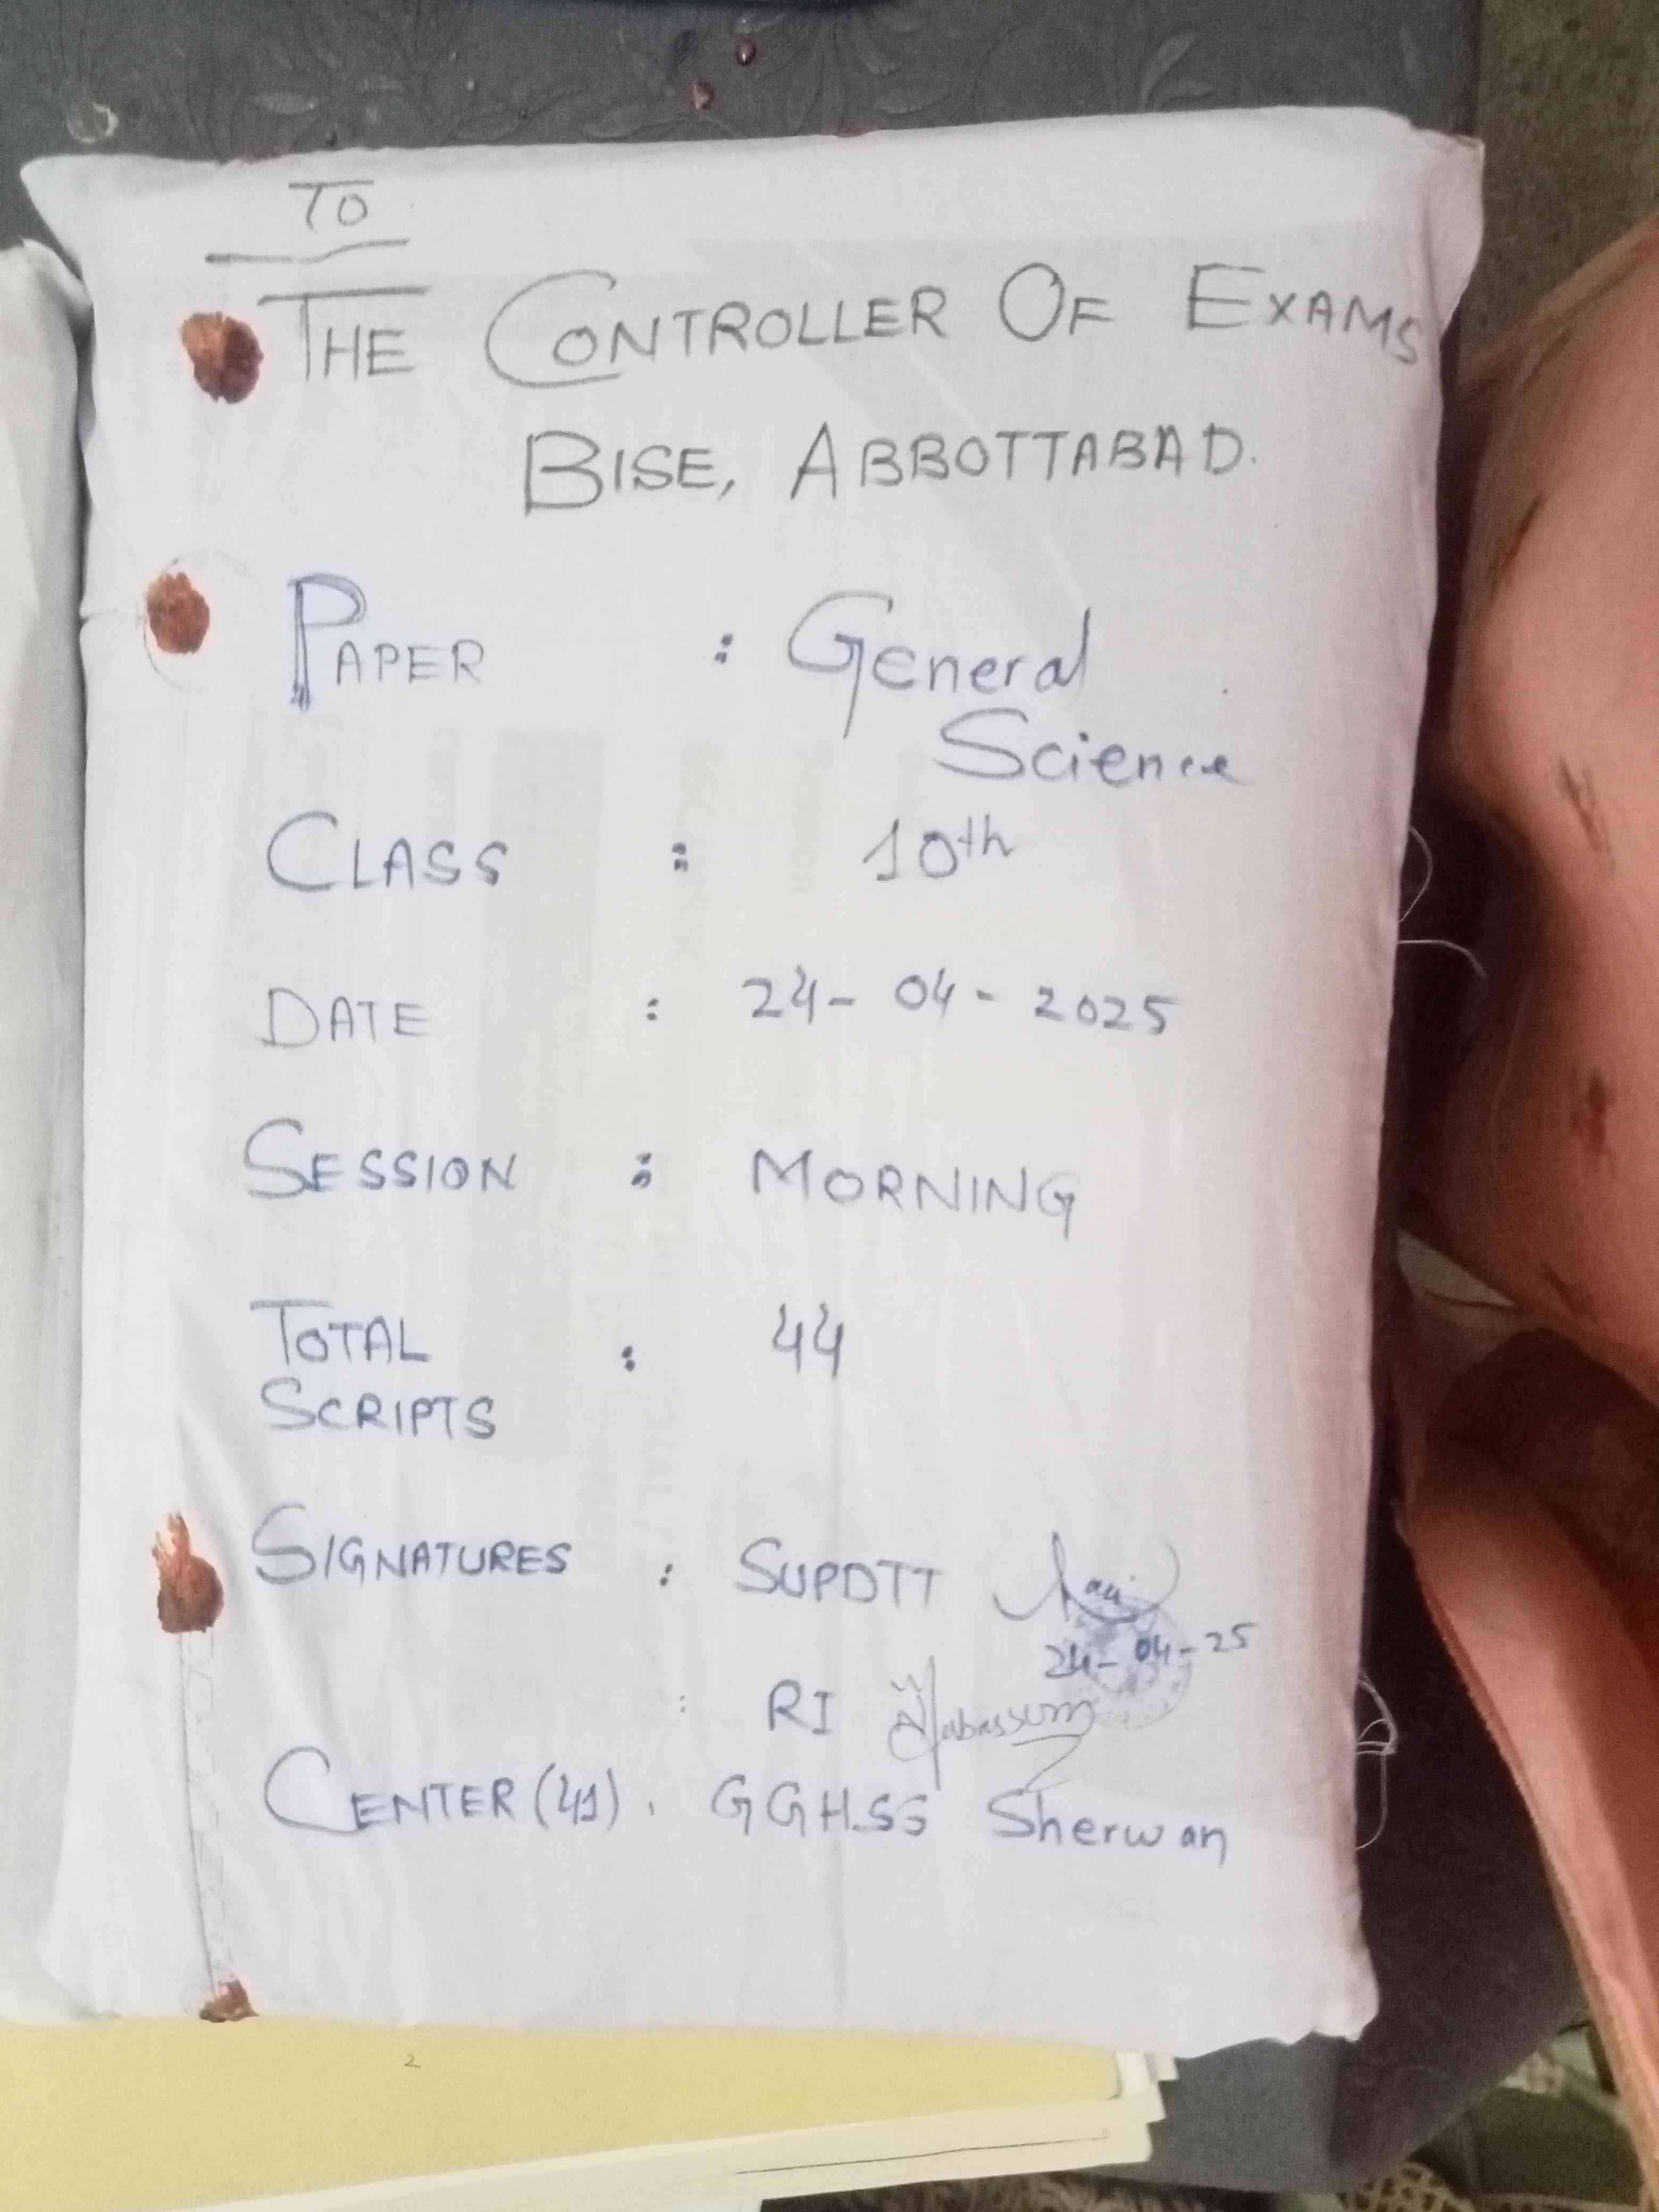 To
THE CONTROLLER OF EXAMS
BISE, ABBOTTABAD.
PAPER : General
Science
CLASS : 10th
DATE : 24-04-2025
SESSION : MORNING
TOTAL : 44
SCRIPTS
SIGNATURES : SUPDTT
24-04-25
: RI Tabassum
CENTER (41). GGHSS Sherwan
2